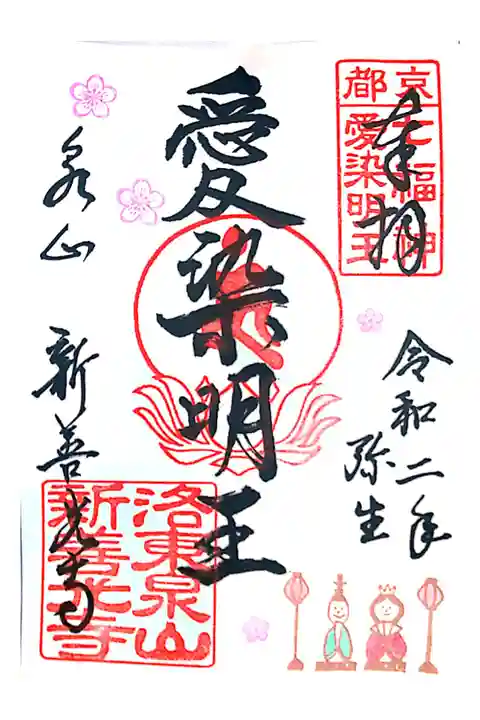 京都
七福神
愛染明王
奉拝
令和二年
弥生
愛染明王
泉山
新善光寺
洛東泉山
新善光寺